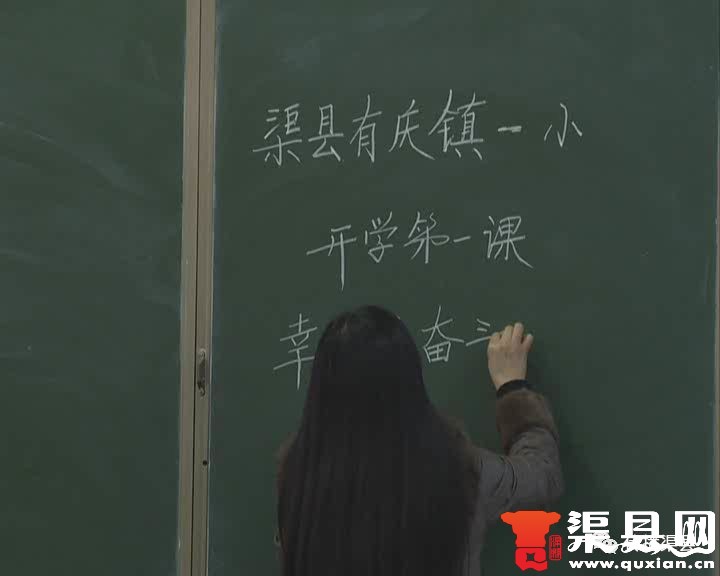 渠县有庆镇一小
开学第一课
幸 奋斗
渠县网
www.quxian.cn